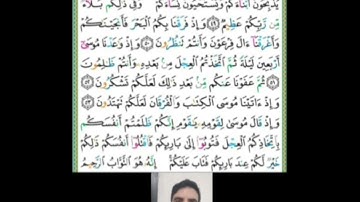 يُذَبِّحُونَ أَبْنَاءَكُمْ وَيَسْتَحْيُونَ نِسَاءَكُمْ وَفِي ذَٰلِكُم بَلَاءٌ
مِّن رَّبِّكُمْ عَظِيمٌ ٤٩ وَإِذْ فَرَقْنَا بِكُمُ الْبَحْرَ فَأَنجَيْنَاكُمْ
وَأَغْرَقْنَا آلَ فِرْعَوْنَ وَأَنتُمْ تَنظُرُونَ ٥٠ وَإِذْ وَاعَدْنَا مُوسَىٰ
أَرْبَعِينَ لَيْلَةً ثُمَّ اتَّخَذْتُمُ الْعِجْلَ مِن بَعْدِهِ وَأَنتُمْ ظَالِمُونَ
٥١ ثُمَّ عَفَوْنَا عَنكُم مِّن بَعْدِ ذَٰلِكَ لَعَلَّكُمْ تَشْكُرُونَ ٥٢
وَإِذْ آتَيْنَا مُوسَى الْكِتَابَ وَالْفُرْقَانَ لَعَلَّكُمْ تَهْتَدُونَ ٥٣
وَإِذْ قَالَ مُوسَىٰ لِقَوْمِهِ يَا قَوْمِ إِنَّكُمْ ظَلَمْتُمْ أَنفُسَكُم
بِاتِّخَاذِكُمُ الْعِجْلَ فَتُوبُوا إِلَىٰ بَارِئِكُمْ فَاقْتُلُوا أَنفُسَكُمْ ذَٰلِكُمْ
خَيْرٌ لَّكُمْ عِندَ بَارِئِكُمْ فَتَابَ عَلَيْكُمْ إِنَّهُ هُوَ التَّوَّابُ الرَّحِيمُ